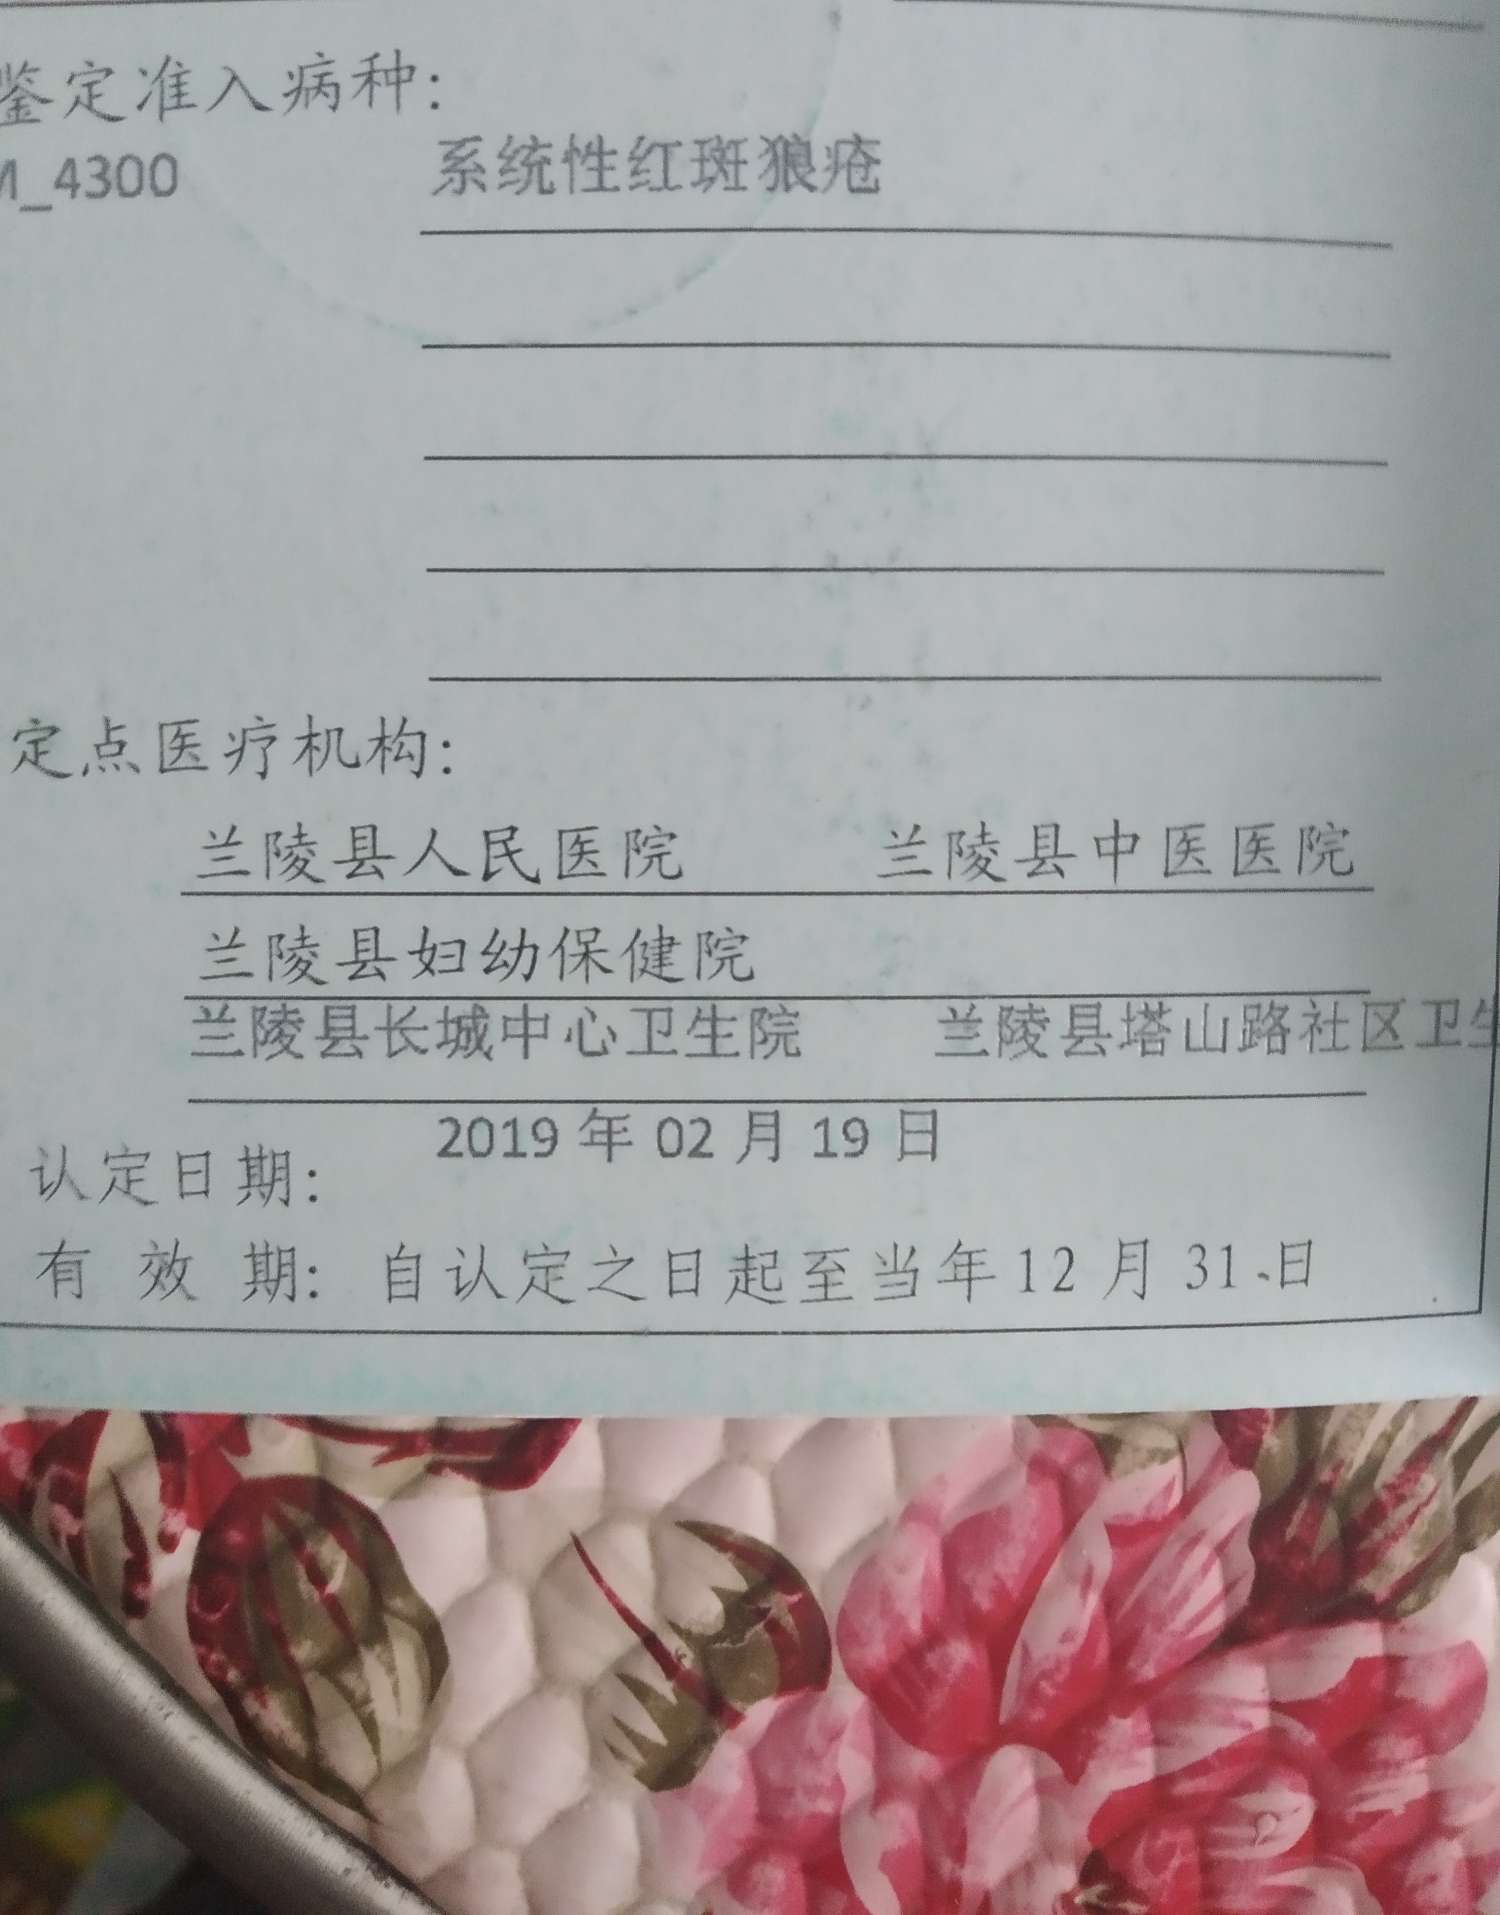 鉴定准入病种：
M_4300 系统性红斑狼疮
定点医疗机构：
兰陵县人民医院 兰陵县中医医院
兰陵县妇幼保健院
兰陵县长城中心卫生院 兰陵县塔山路社区卫生
2019年02月19日
认定日期：
有效期：自认定之日起至当年12月31日